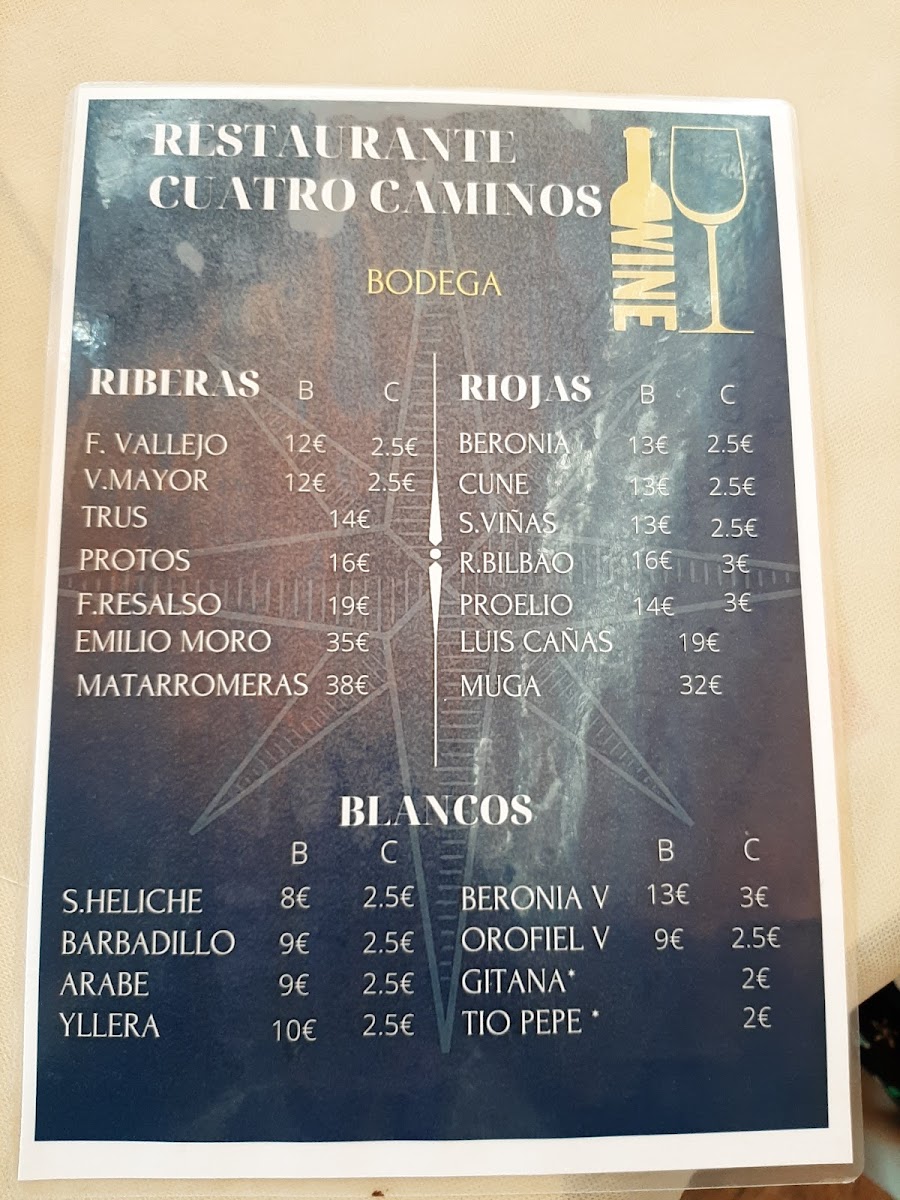 RESTAURANTE
CUATRO CAMINOS
WINE
BODEGA
RIBERAS B C
F. VALLEJO 12€ 2.5€
V.MAYOR 12€ 2.5€
TRUS 14€
PROTOS 16€
F.RESALSO 19€
EMILIO MORO 35€
MATARROMERAS 38€
RIOJAS B C
BERONIA 13€ 2.5€
CUNE 13€ 2.5€
S.VIÑAS 13€ 2.5€
R.BILBAO 16€ 3€
PROELIO 14€ 3€
LUIS CAÑAS 19€
MUGA 32€
BLANCOS
B C
S.HELICHE 8€ 2.5€
BARBADILLO 9€ 2.5€
ARABE 9€ 2.5€
YLLERA 10€ 2.5€
B C
BERONIA V 13€ 3€
OROFIEL V 9€ 2.5€
GITANA* 2€
TIO PEPE * 2€